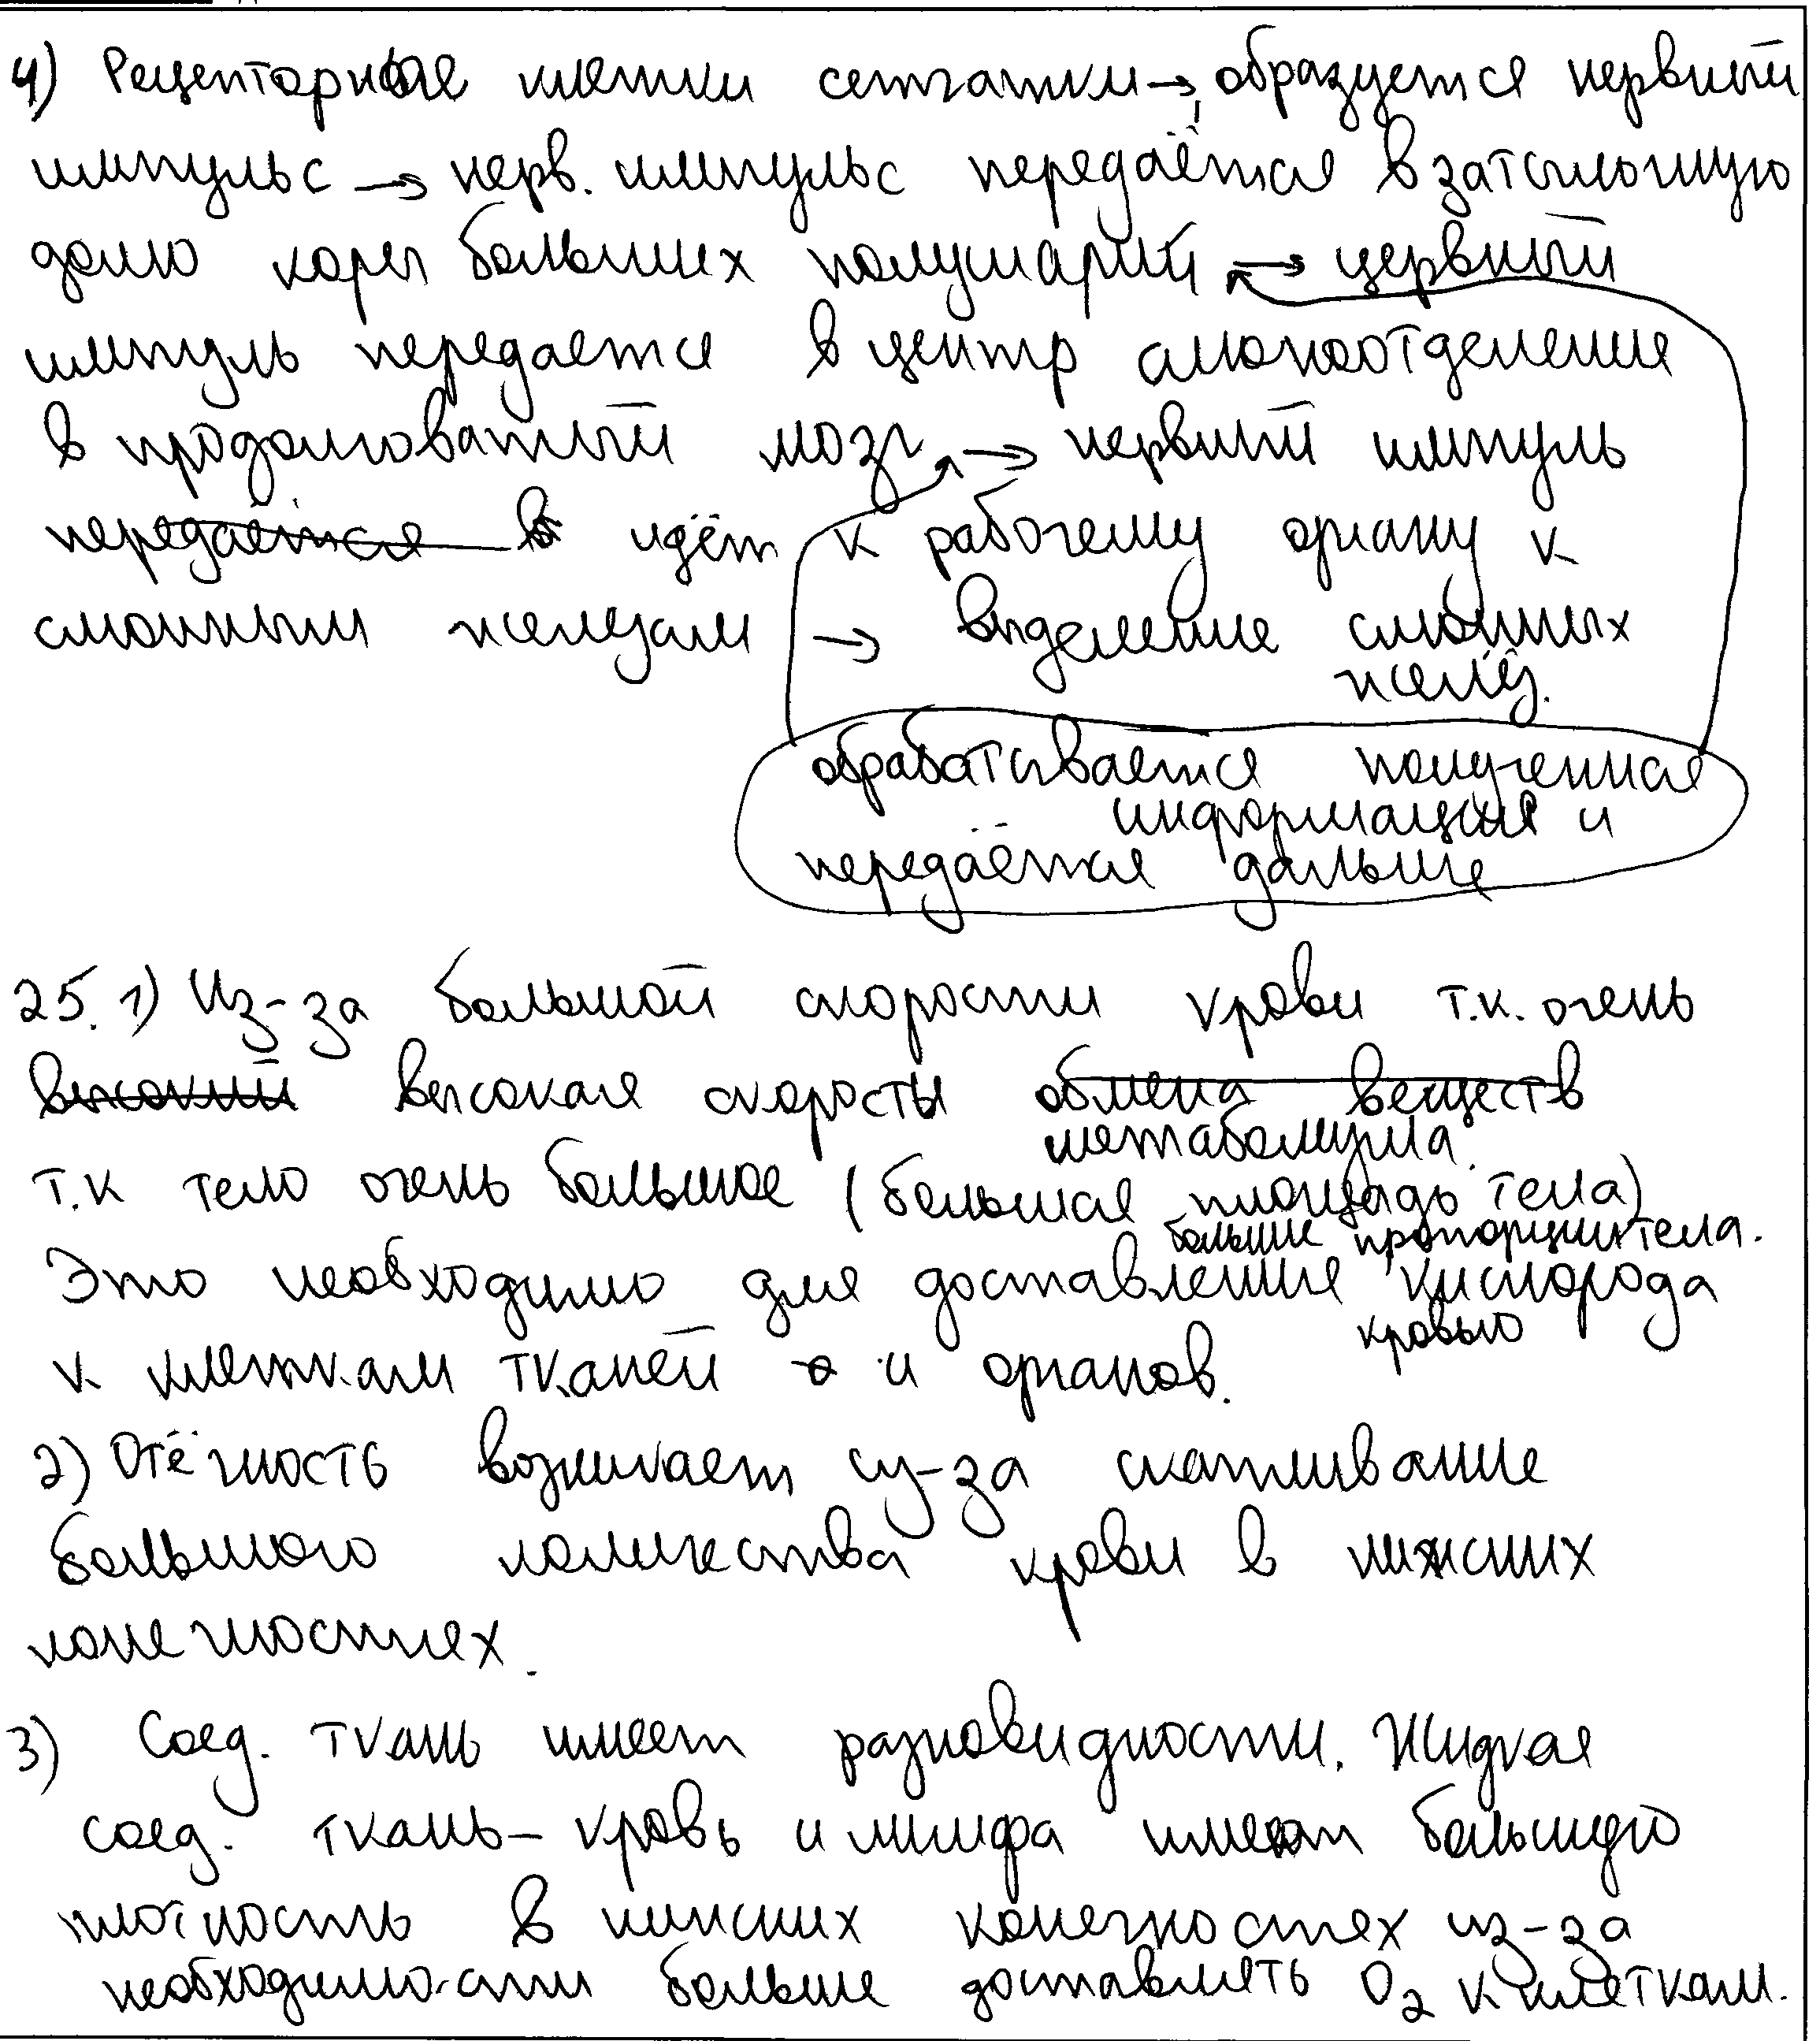 4) Рецепторные клетки сетчатки → образуется нервный
импульс → нерв. импульс передаётся в затылочную
долю коры больших полушарий → нервный
импуль передается в центр слюноотделения
в продолговатый мозг → нервный импуль
передаётся в идёт к рабочему органу к
слюнным железам → выделение слюнных
желёз.
обрабатывается полученная
информация и
передаётся дальше
25. 1) Из-за большой скорости крови т.к. очень
высокий высокая скорость обмена веществ
метаболизма.
т.к тело очень большое (большая площадь тела)
больше пропорции тела.
Это необходимо для доставления кислорода
кровью
к клеткам тканей и органов.
2) Отёчность возникает из-за скапливание
большого количества крови в нижних
конечностях.
3) Соед. ткань имеет разновидности. Жидкая
соед. ткань – кровь и лимфа имеют большую
плотность в нижних конечностях из-за
необходимости больше доставлять O₂ к клеткам.